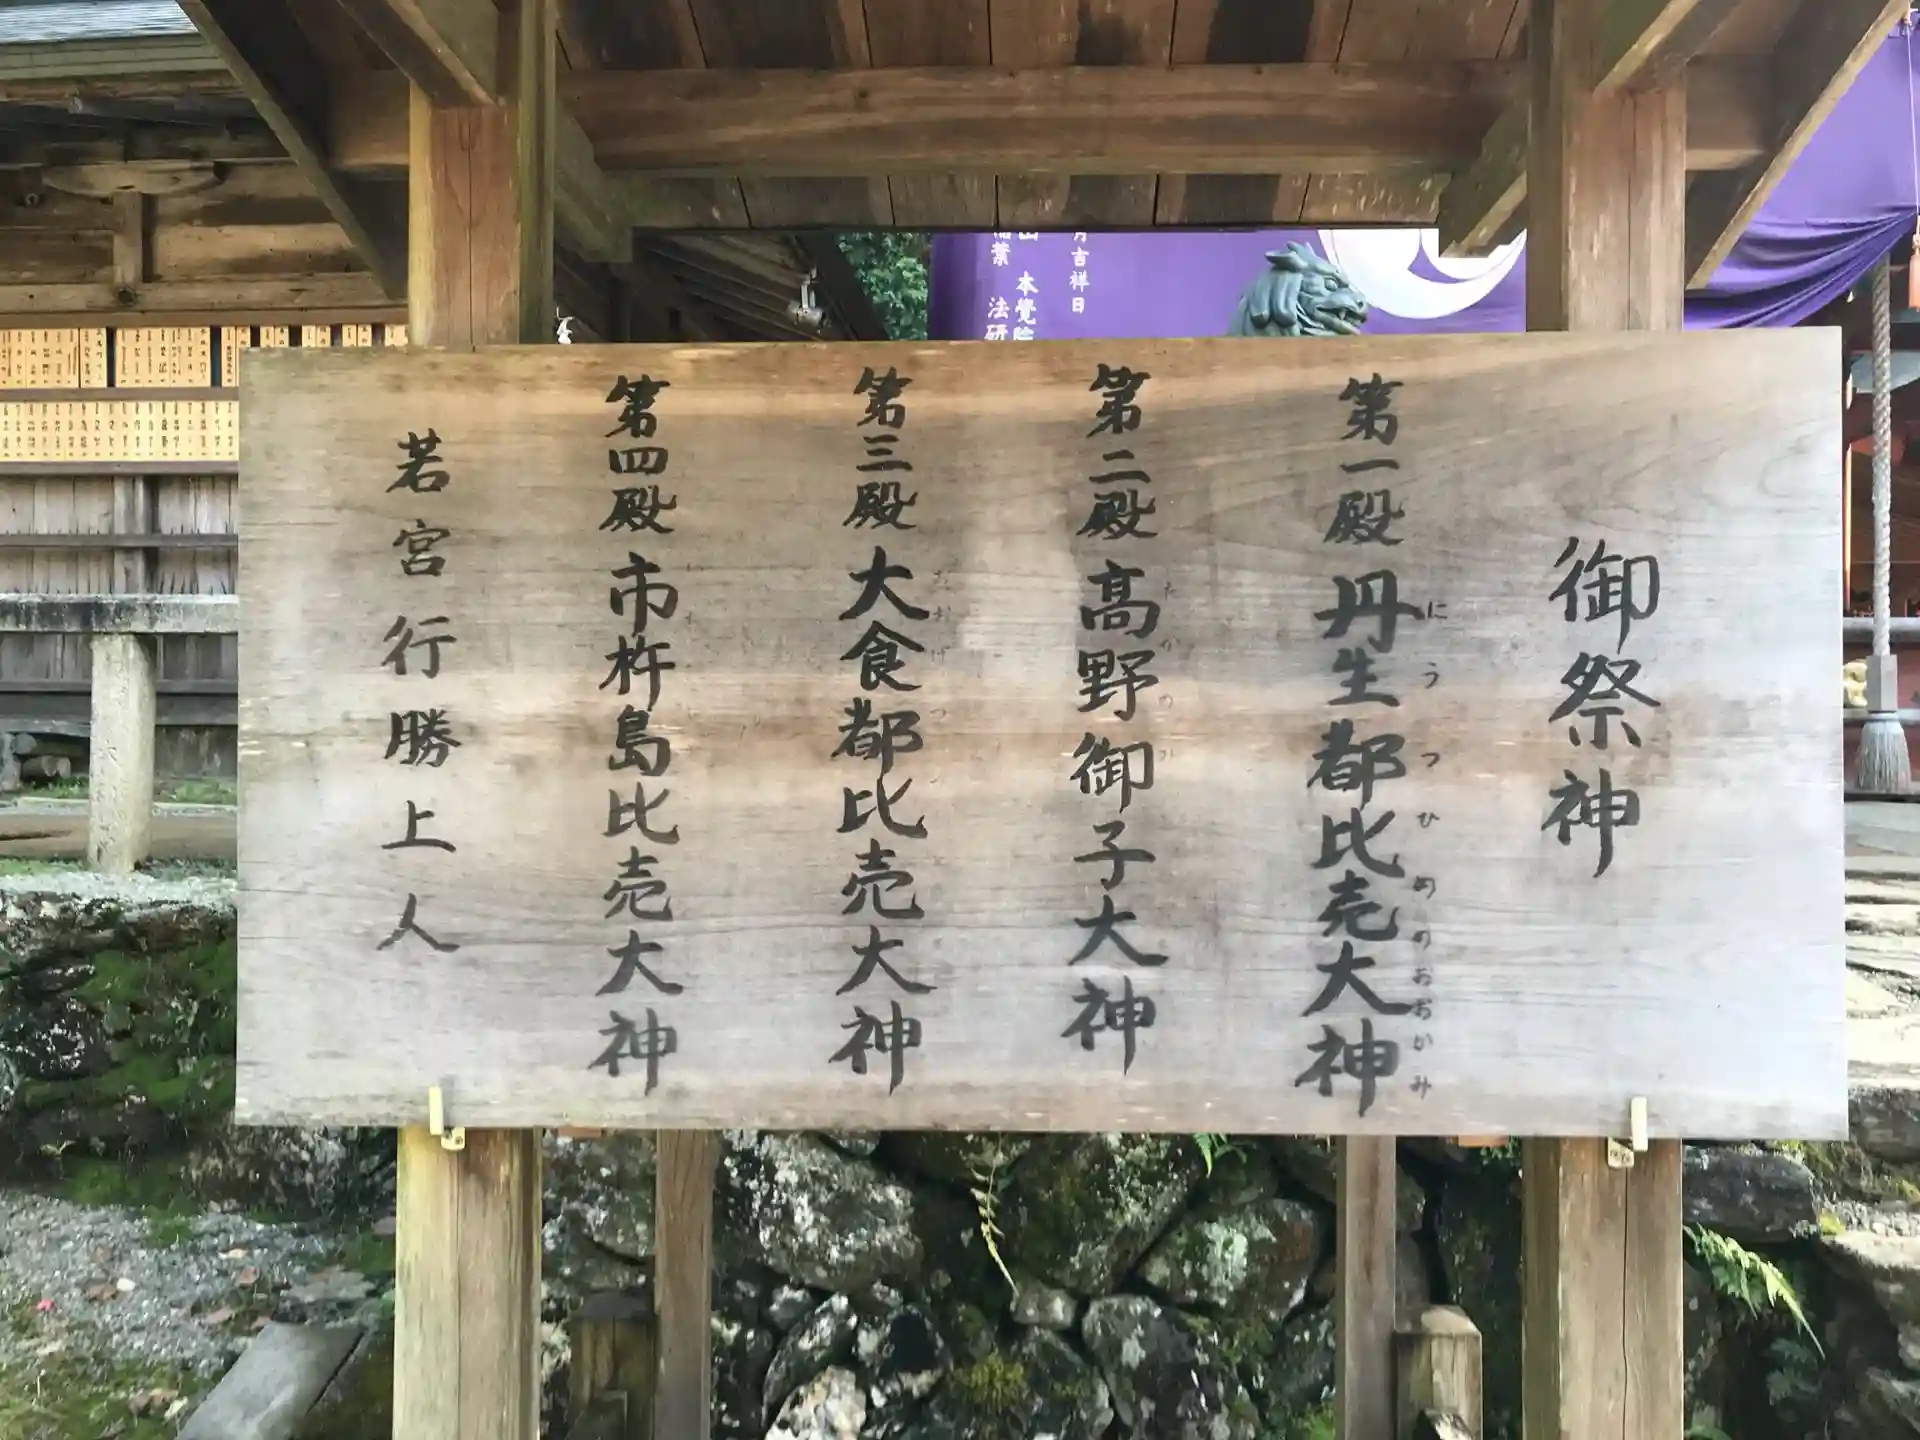 御祭神
第一殿 丹生都比売大神
にうつひめのおおかみ
第二殿 高野御子大神
たかのみ
第三殿 大食都比売大神
おおげつ
第四殿 市杵島比売大神
若宮行勝上人
月吉祥日
本覺院
法研